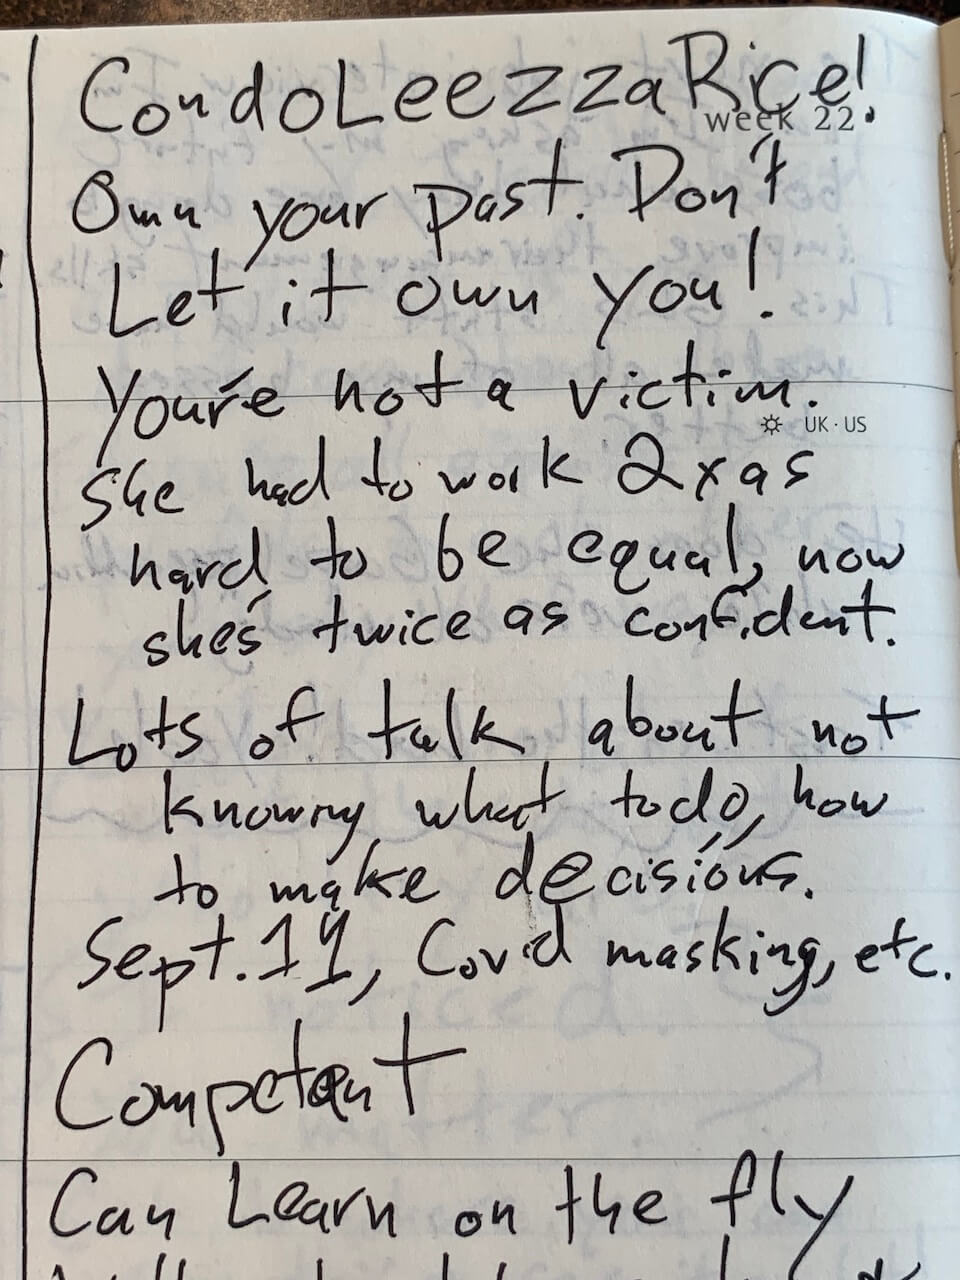 CondoLeezzaRice!
week 22
Own your past. Don't
Let it own you!
You're not a victim.
UK · US
She had to work 2x as
hard to be equal, now
she's twice as confident.
Lots of talk about not
knowing what to do, how
to make decisions.
Sept. 11, Covid masking, etc.
Competent
Can Learn on the fly